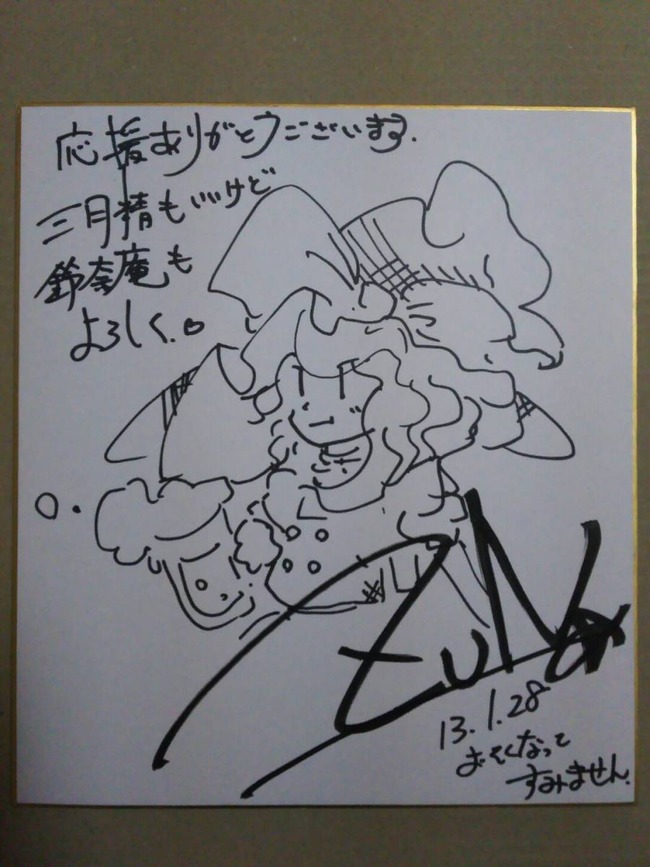 応援ありがとうございます.
三月精もいいけど
鈴奈庵も
よろしく.
ZUN
13.1.28
おそくなって
すみません.